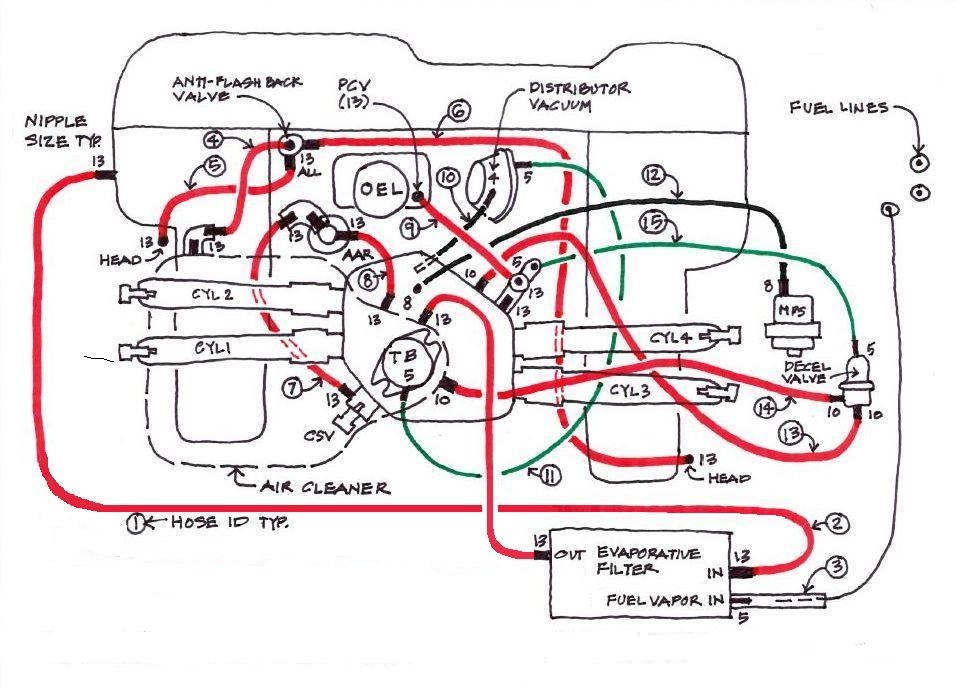 ANTI-FLASHBACK
VALVE
PCV
(13)
DISTRIBUTOR
VACUUM
FUEL LINES
NIPPLE
SIZE TYP.
13
4
5
6
13
ALL
OEL
4
5
10
9
12
15
13
HEAD
13
13
13
AAR
8
13
10
5
13
8
13
8
MPS
CYL 2
CYL 1
TB
5
10
CYL 4
CYL 3
DECEL
VALVE
5
10
10
14
13
7
13
CSV
11
13
HEAD
AIR CLEANER
1
HOSE ID TYP.
2
13
OUT
EVAPORATIVE
FILTER
13
IN
3
FUEL VAPOR IN
5